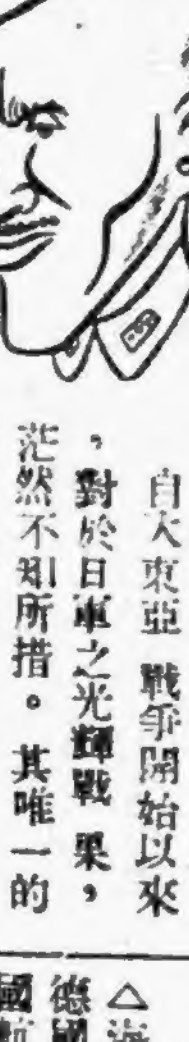 自大東亞戰爭開始以來
，對於日軍之光輝戰果，
茫然不知所措。其唯一的
△海
德國
國